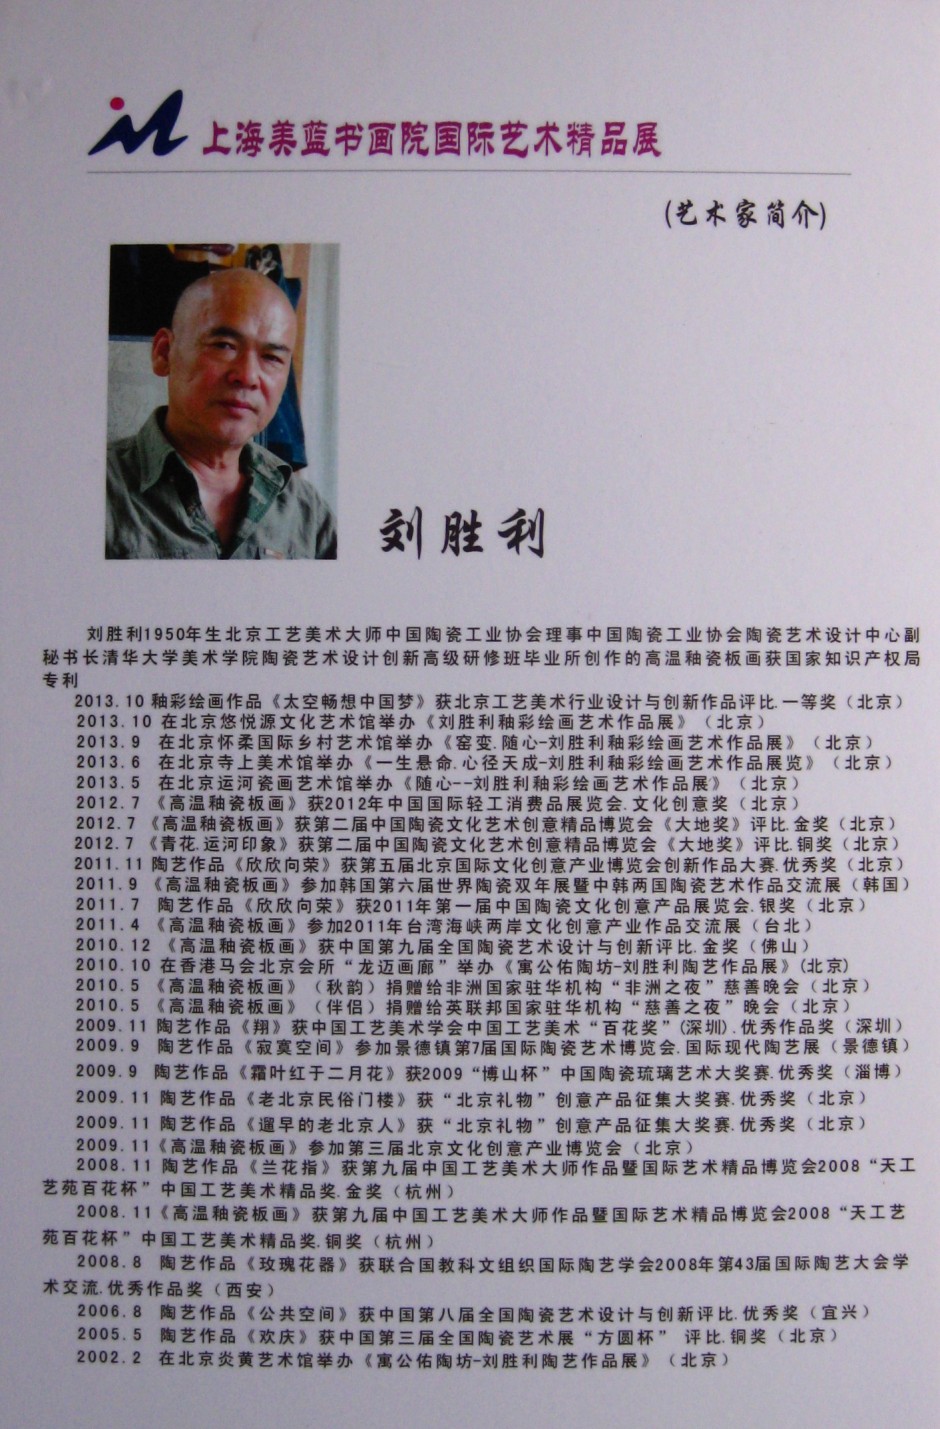 上海美蓝书画院国际艺术精品展
(艺术家简介)
刘胜利
刘胜利1950年生北京工艺美术大师中国陶瓷工业协会理事中国陶瓷工业协会陶瓷艺术设计中心副
秘书长清华大学美术学院陶瓷艺术设计创新高级研修班毕业所创作的高温釉瓷板画获国家知识产权局
专利
2013.10 釉彩绘画作品《太空畅想中国梦》获北京工艺美术行业设计与创新作品评比.一等奖（北京）
2013.10 在北京悠悦源文化艺术馆举办《刘胜利釉彩绘画艺术作品展》（北京）
2013.9 在北京怀柔国际乡村艺术馆举办《窑变.随心-刘胜利釉彩绘画艺术作品展》（北京）
2013.6 在北京寺上美术馆举办《一生悬命.心径天成-刘胜利釉彩绘画艺术作品展览》（北京）
2013.5 在北京运河瓷画艺术馆举办《随心--刘胜利釉彩绘画艺术作品展》（北京）
2012.7 《高温釉瓷板画》获2012年中国国际轻工消费品展览会.文化创意奖（北京）
2012.7 《高温釉瓷板画》获第二届中国陶瓷文化艺术创意精品博览会《大地奖》评比.金奖（北京）
2012.7 《青花.运河印象》获第二届中国陶瓷文化艺术创意精品博览会《大地奖》评比.铜奖（北京）
2011.11 陶艺作品《欣欣向荣》获第五届北京国际文化创意产业博览会创新作品大赛.优秀奖（北京）
2011.9 《高温釉瓷板画》参加韩国第六届世界陶瓷双年展暨中韩两国陶瓷艺术作品交流展（韩国）
2011.7 陶艺作品《欣欣向荣》获2011年第一届中国陶瓷文化创意产品展览会.银奖（北京）
2011.4 《高温釉瓷板画》参加2011年台湾海峡两岸文化创意产业作品交流展（台北）
2010.12 《高温釉瓷板画》获中国第九届全国陶瓷艺术设计与创新评比.金奖（佛山）
2010.10 在香港马会北京会所“龙迈画廊”举办《寓公佑陶坊-刘胜利陶艺作品展》(北京)
2010.5 《高温釉瓷板画》（秋韵）捐赠给非洲国家驻华机构“非洲之夜”慈善晚会（北京）
2010.5 《高温釉瓷板画》（伴侣）捐赠给英联邦国家驻华机构“慈善之夜”晚会（北京）
2009.11 陶艺作品《翔》获中国工艺美术学会中国工艺美术“百花奖”(深圳).优秀作品奖（深圳）
2009.9 陶艺作品《寂寞空间》参加景德镇第7届国际陶瓷艺术博览会.国际现代陶艺展（景德镇）
2009.9 陶艺作品《霜叶红于二月花》获2009“博山杯”中国陶瓷琉璃艺术大奖赛.优秀奖（淄博）
2009.11 陶艺作品《老北京民俗门楼》获“北京礼物”创意产品征集大奖赛.优秀奖（北京）
2009.11 陶艺作品《遛早的老北京人》获“北京礼物”创意产品征集大奖赛.优秀奖（北京）
2009.11《高温釉瓷板画》参加第三届北京文化创意产业博览会（北京）
2008.11 陶艺作品《兰花指》获第九届中国工艺美术大师作品暨国际艺术精品博览会2008“天工
艺苑百花杯”中国工艺美术精品奖.金奖（杭州）
2008.11《高温釉瓷板画》获第九届中国工艺美术大师作品暨国际艺术精品博览会2008“天工艺
苑百花杯”中国工艺美术精品奖.铜奖（杭州）
2008.8 陶艺作品《玫瑰花器》获联合国教科文组织国际陶艺学会2008年第43届国际陶艺大会学
术交流.优秀作品奖（西安）
2006.8 陶艺作品《公共空间》获中国第八届全国陶瓷艺术设计与创新评比.优秀奖（宜兴）
2005.5 陶艺作品《欢庆》获中国第三届全国陶瓷艺术展“方圆杯” 评比.铜奖（北京）
2002.2 在北京炎黄艺术馆举办《寓公佑陶坊-刘胜利陶艺作品展》（北京）